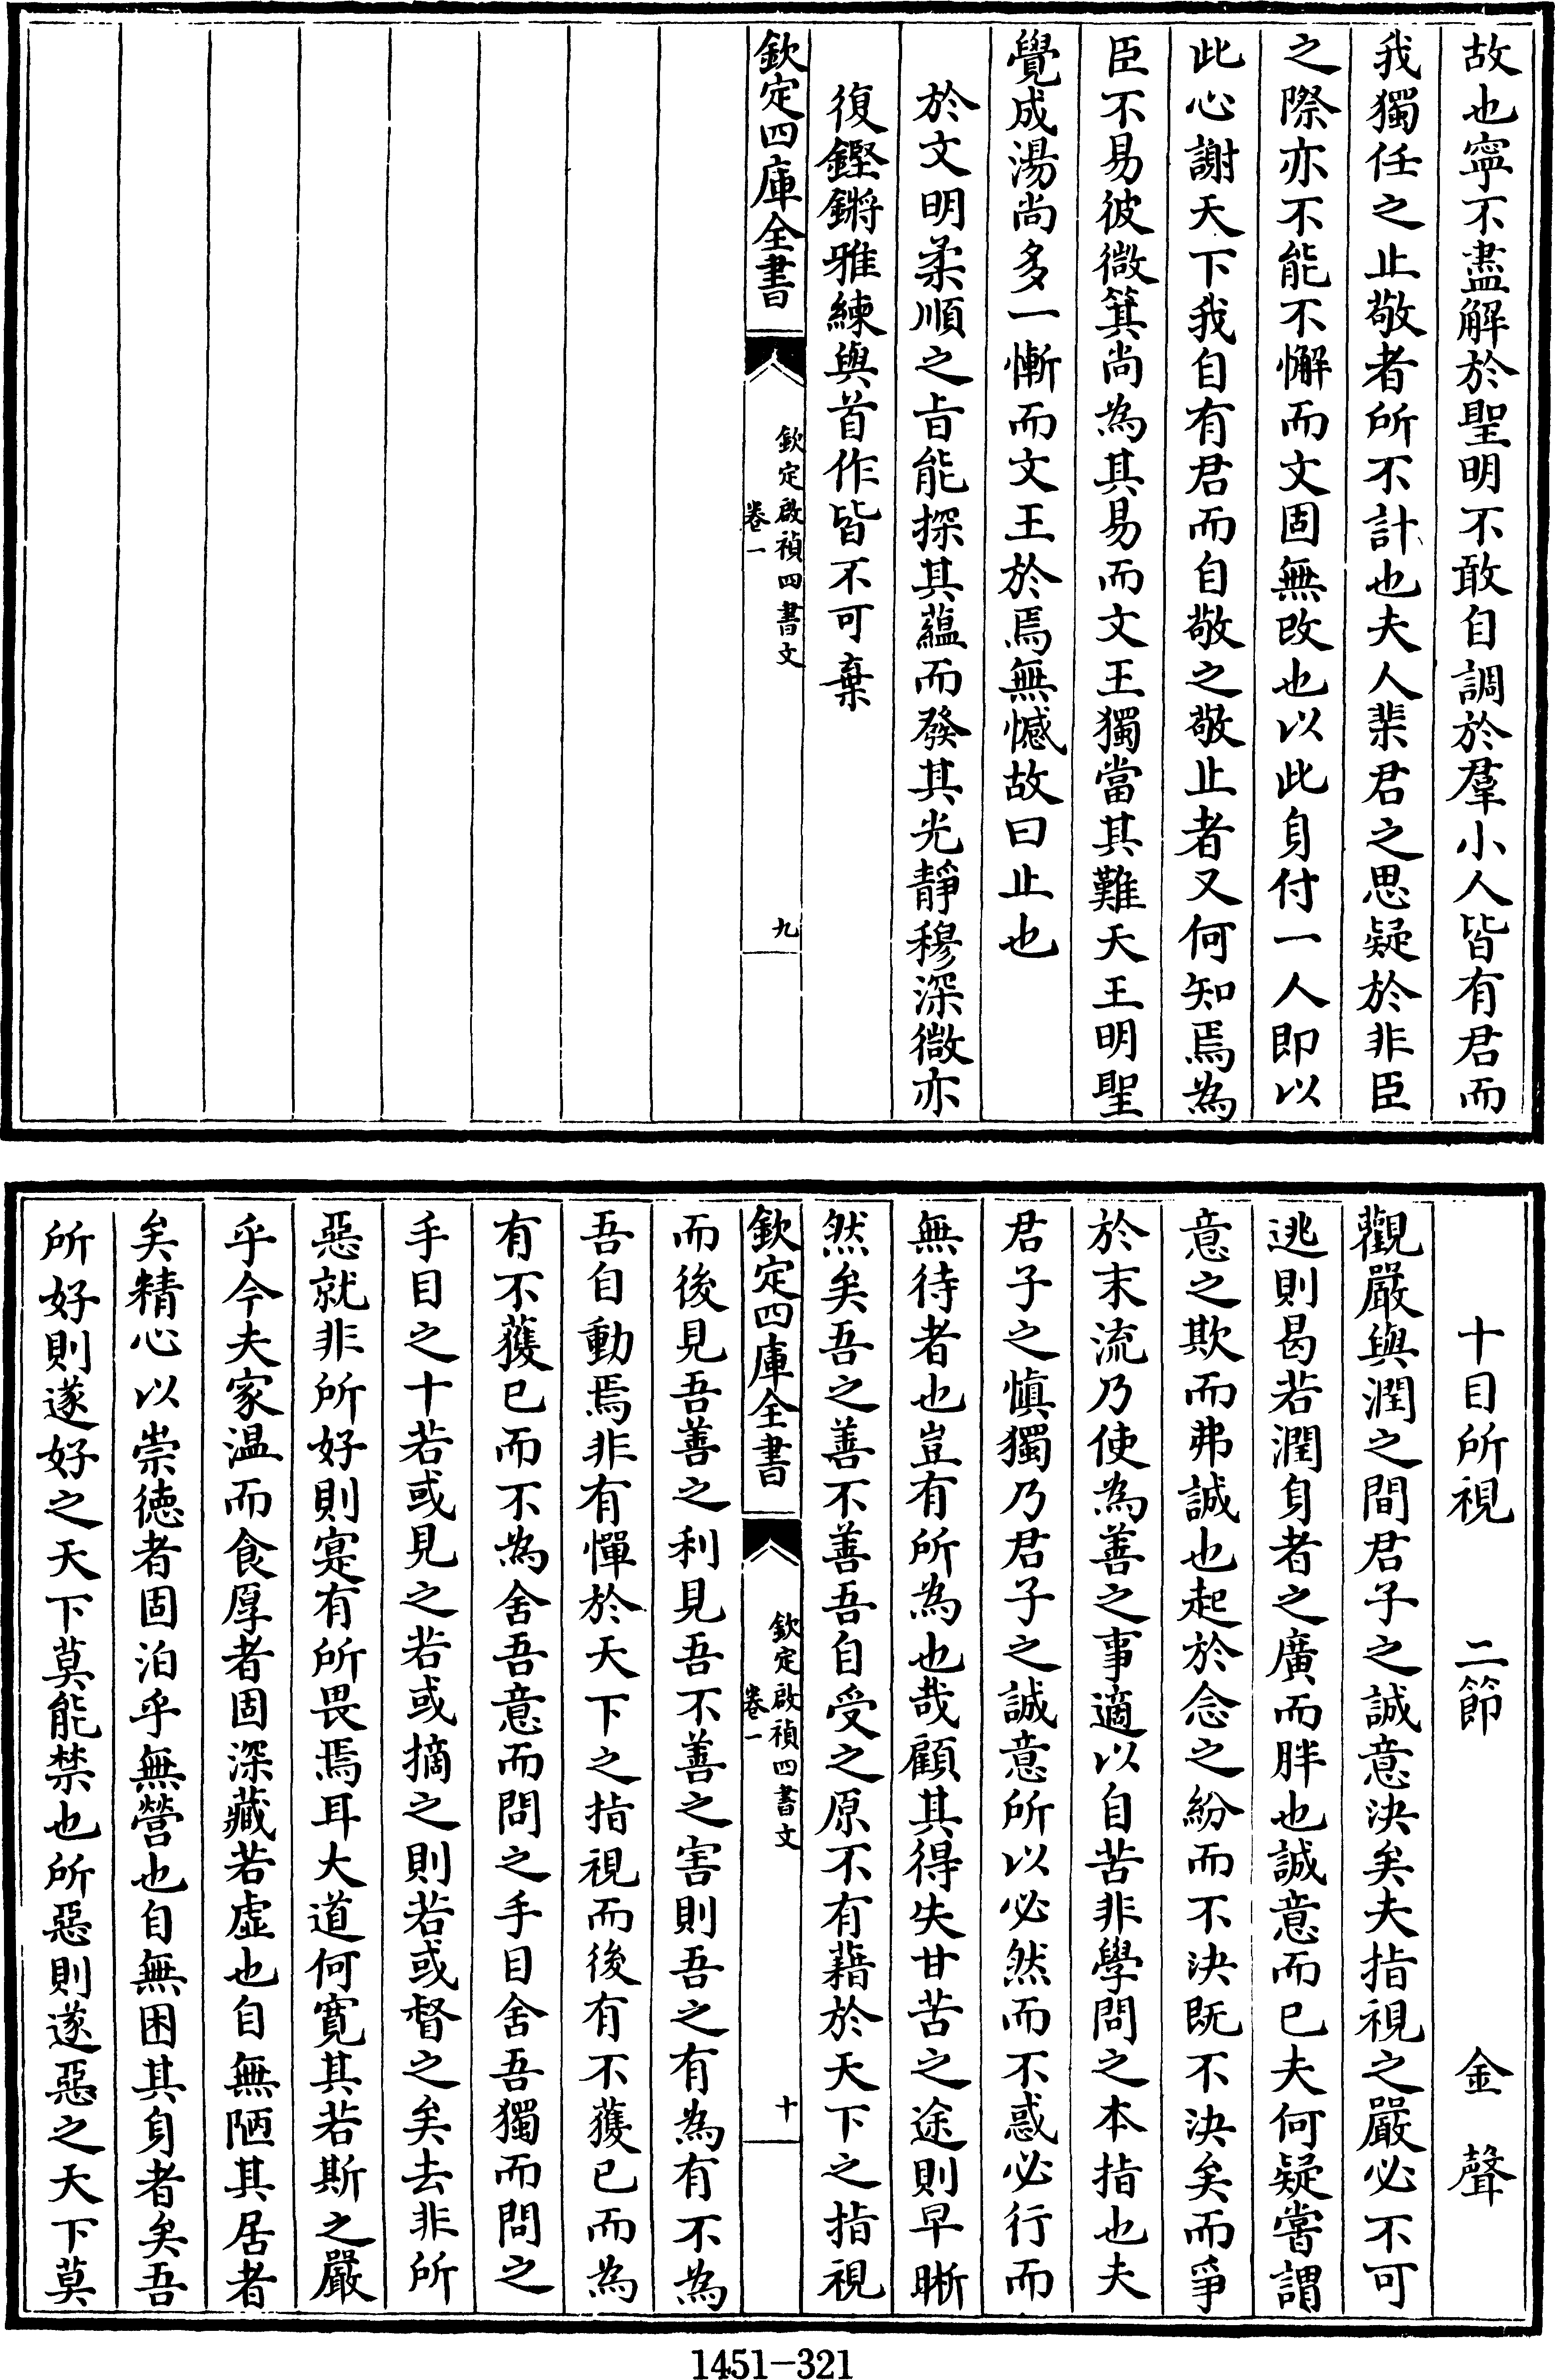 故也寧不盡解於聖明不敢自調於羣小人皆有君而
我獨任之止敬者所不計也夫人棐君之思疑於非臣
之際亦不能不懈而文固無改也以此身付一人即以
此心謝天下我自有君而自敬之敬止者又何知焉為
臣不易彼微箕尚為其易而文王獨當其難天王明聖
覺成湯尚多一慚而文王於焉無憾故曰止也
於文明柔順之旨能探其蘊而發其光靜穆深微亦
復鏗鏘雅練與首作皆不可棄
欽定四庫全書
欽定啟禎四書文
卷一
九
十目所視 二節 金聲
觀嚴與潤之間君子之誠意決矣夫指視之嚴必不可
逃則曷若潤身者之廣而胖也誠意而已夫何疑嘗謂
意之欺而弗誠也起於念之紛而不決既不決矣而爭
於末流乃使為善之事適以自苦非學問之本指也夫
君子之慎獨乃君子之誠意所以必然而不惑必行而
無待者也豈有所為也哉顧其得失甘苦之途則早晰
然矣吾之善不善吾自受之原不有藉於天下之指視
欽定四庫全書
欽定啟禎四書文
卷一
十
而後見吾善之利見吾不善之害則吾之有為有不為
吾自動焉非有憚於天下之指視而後有不獲已而為
有不獲已而不為舍吾意而問之手目舍吾獨而問之
手目之十若或見之若或摘之則若或督之矣去非所
惡就非所好則寔有所畏焉耳大道何寬其若斯之嚴
乎今夫家温而食厚者固深藏若虛也自無陋其居者
矣精心以崇徳者固泊乎無營也自無困其身者矣吾
所好則遂好之天下莫能禁也所惡則遂惡之天下莫
1451-321